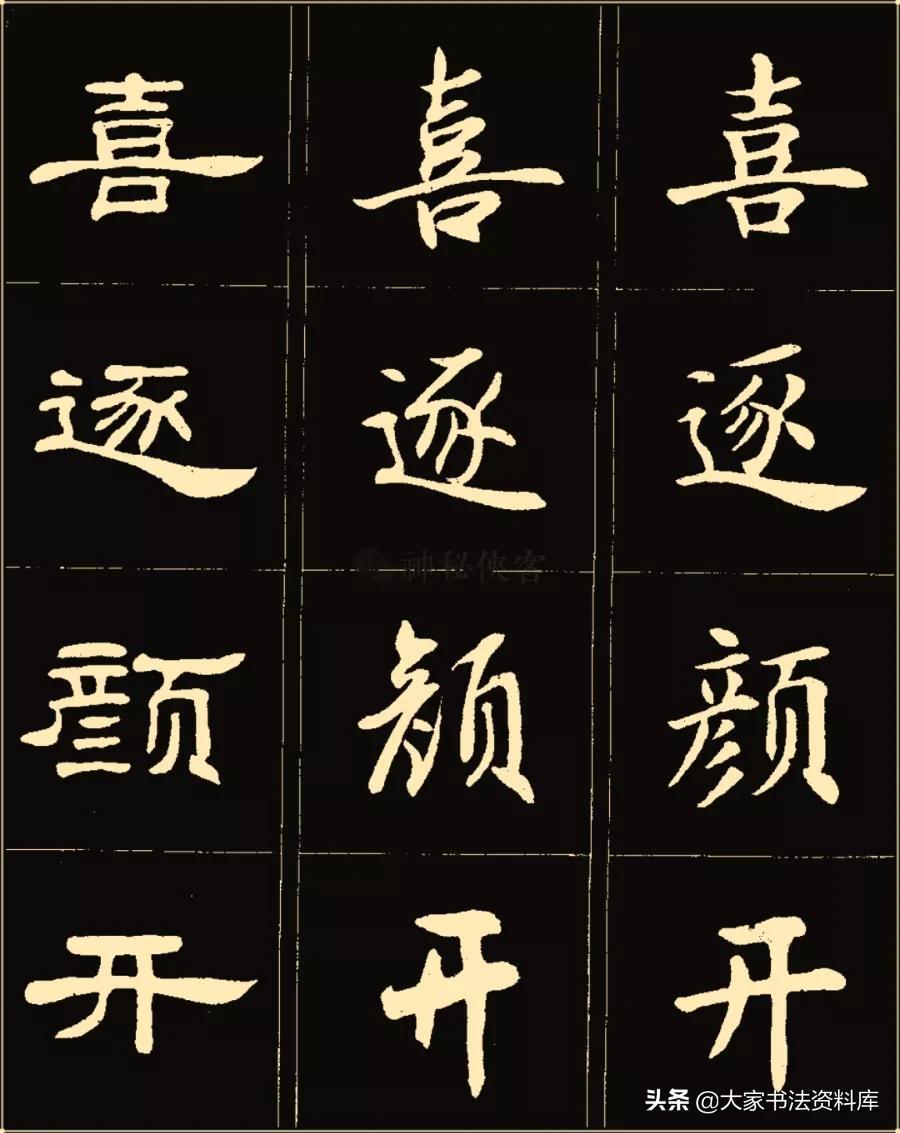 喜 喜 喜
逐 逐 逐
神秘侠客
颜 颜 颜
开 开 开
头条 @大家书法资料库